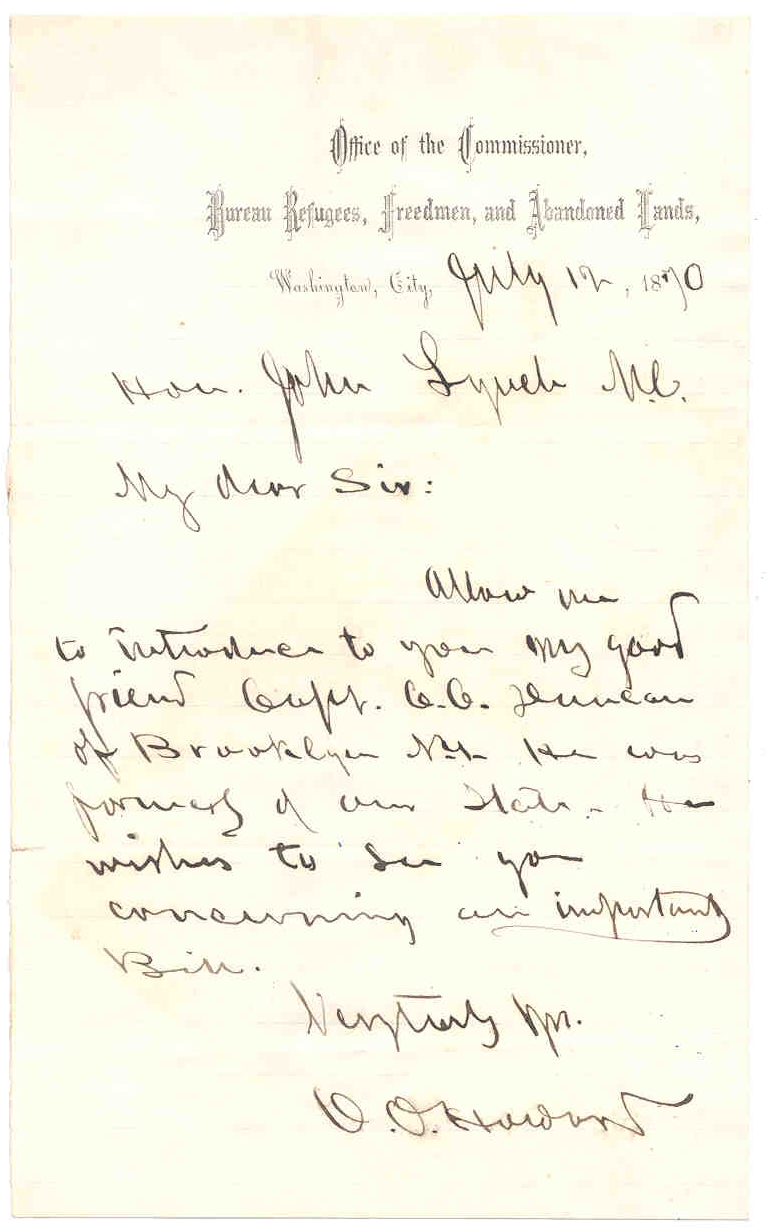 Office of the Commissioner,
Bureau Refugees, Freedmen, and Abandoned Lands,
Washington, City, July 12, 1870
Hon. John Lynch M.C.
My dear Sir:
Allow me
to introduce to you my good
friend Capt. C.C. Duncan
of Brooklyn N.Y. He was
formerly of our State. He
wishes to see you
concerning an important
Bill.
Very truly Yrs.
O.O. Howard